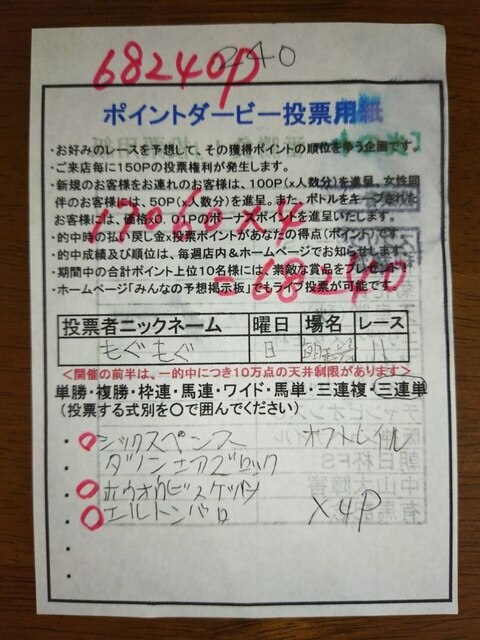 68240P
240
ポイントダービー投票用紙
・お好みのレースを予想して、その獲得ポイントの順位を争う企画です。
・ご来店毎に150Pの投票権利が発生します。
・新規のお客様をお連れのお客様は、100P(x人数分)を進呈。女性同
伴のお客様には、50P(x人数分)を進呈。また、ボトルをキープされた
お客様には、価格x0.01Pのボーナスポイントを進呈いたします。
17060×4
・的中時の払い戻し金×投票ポイントがあなたの得点(ポイント)です。
・的中成績及び順位は、毎週店内&ホームページでお知らせします。
・期間中の合計ポイント上位10名様には、素敵な賞品をプレゼント!
=68240
・ホームページ「みんなの予想掲示板」でもライブ投票が可能です。
投票者ニックネーム 曜日 場名 レース
もぐもぐ 日 11
<開催の前半は、一的中につき10万点の天井制限があります>
単勝・複勝・枠連・馬連・ワイド・馬単・三連複・三連単
(投票する式別を〇で囲んでください)
・シックスペンス オフトレイル
ダノンエアズロック
・ホウオウビスケッツ
・エルトンバロ ×4P